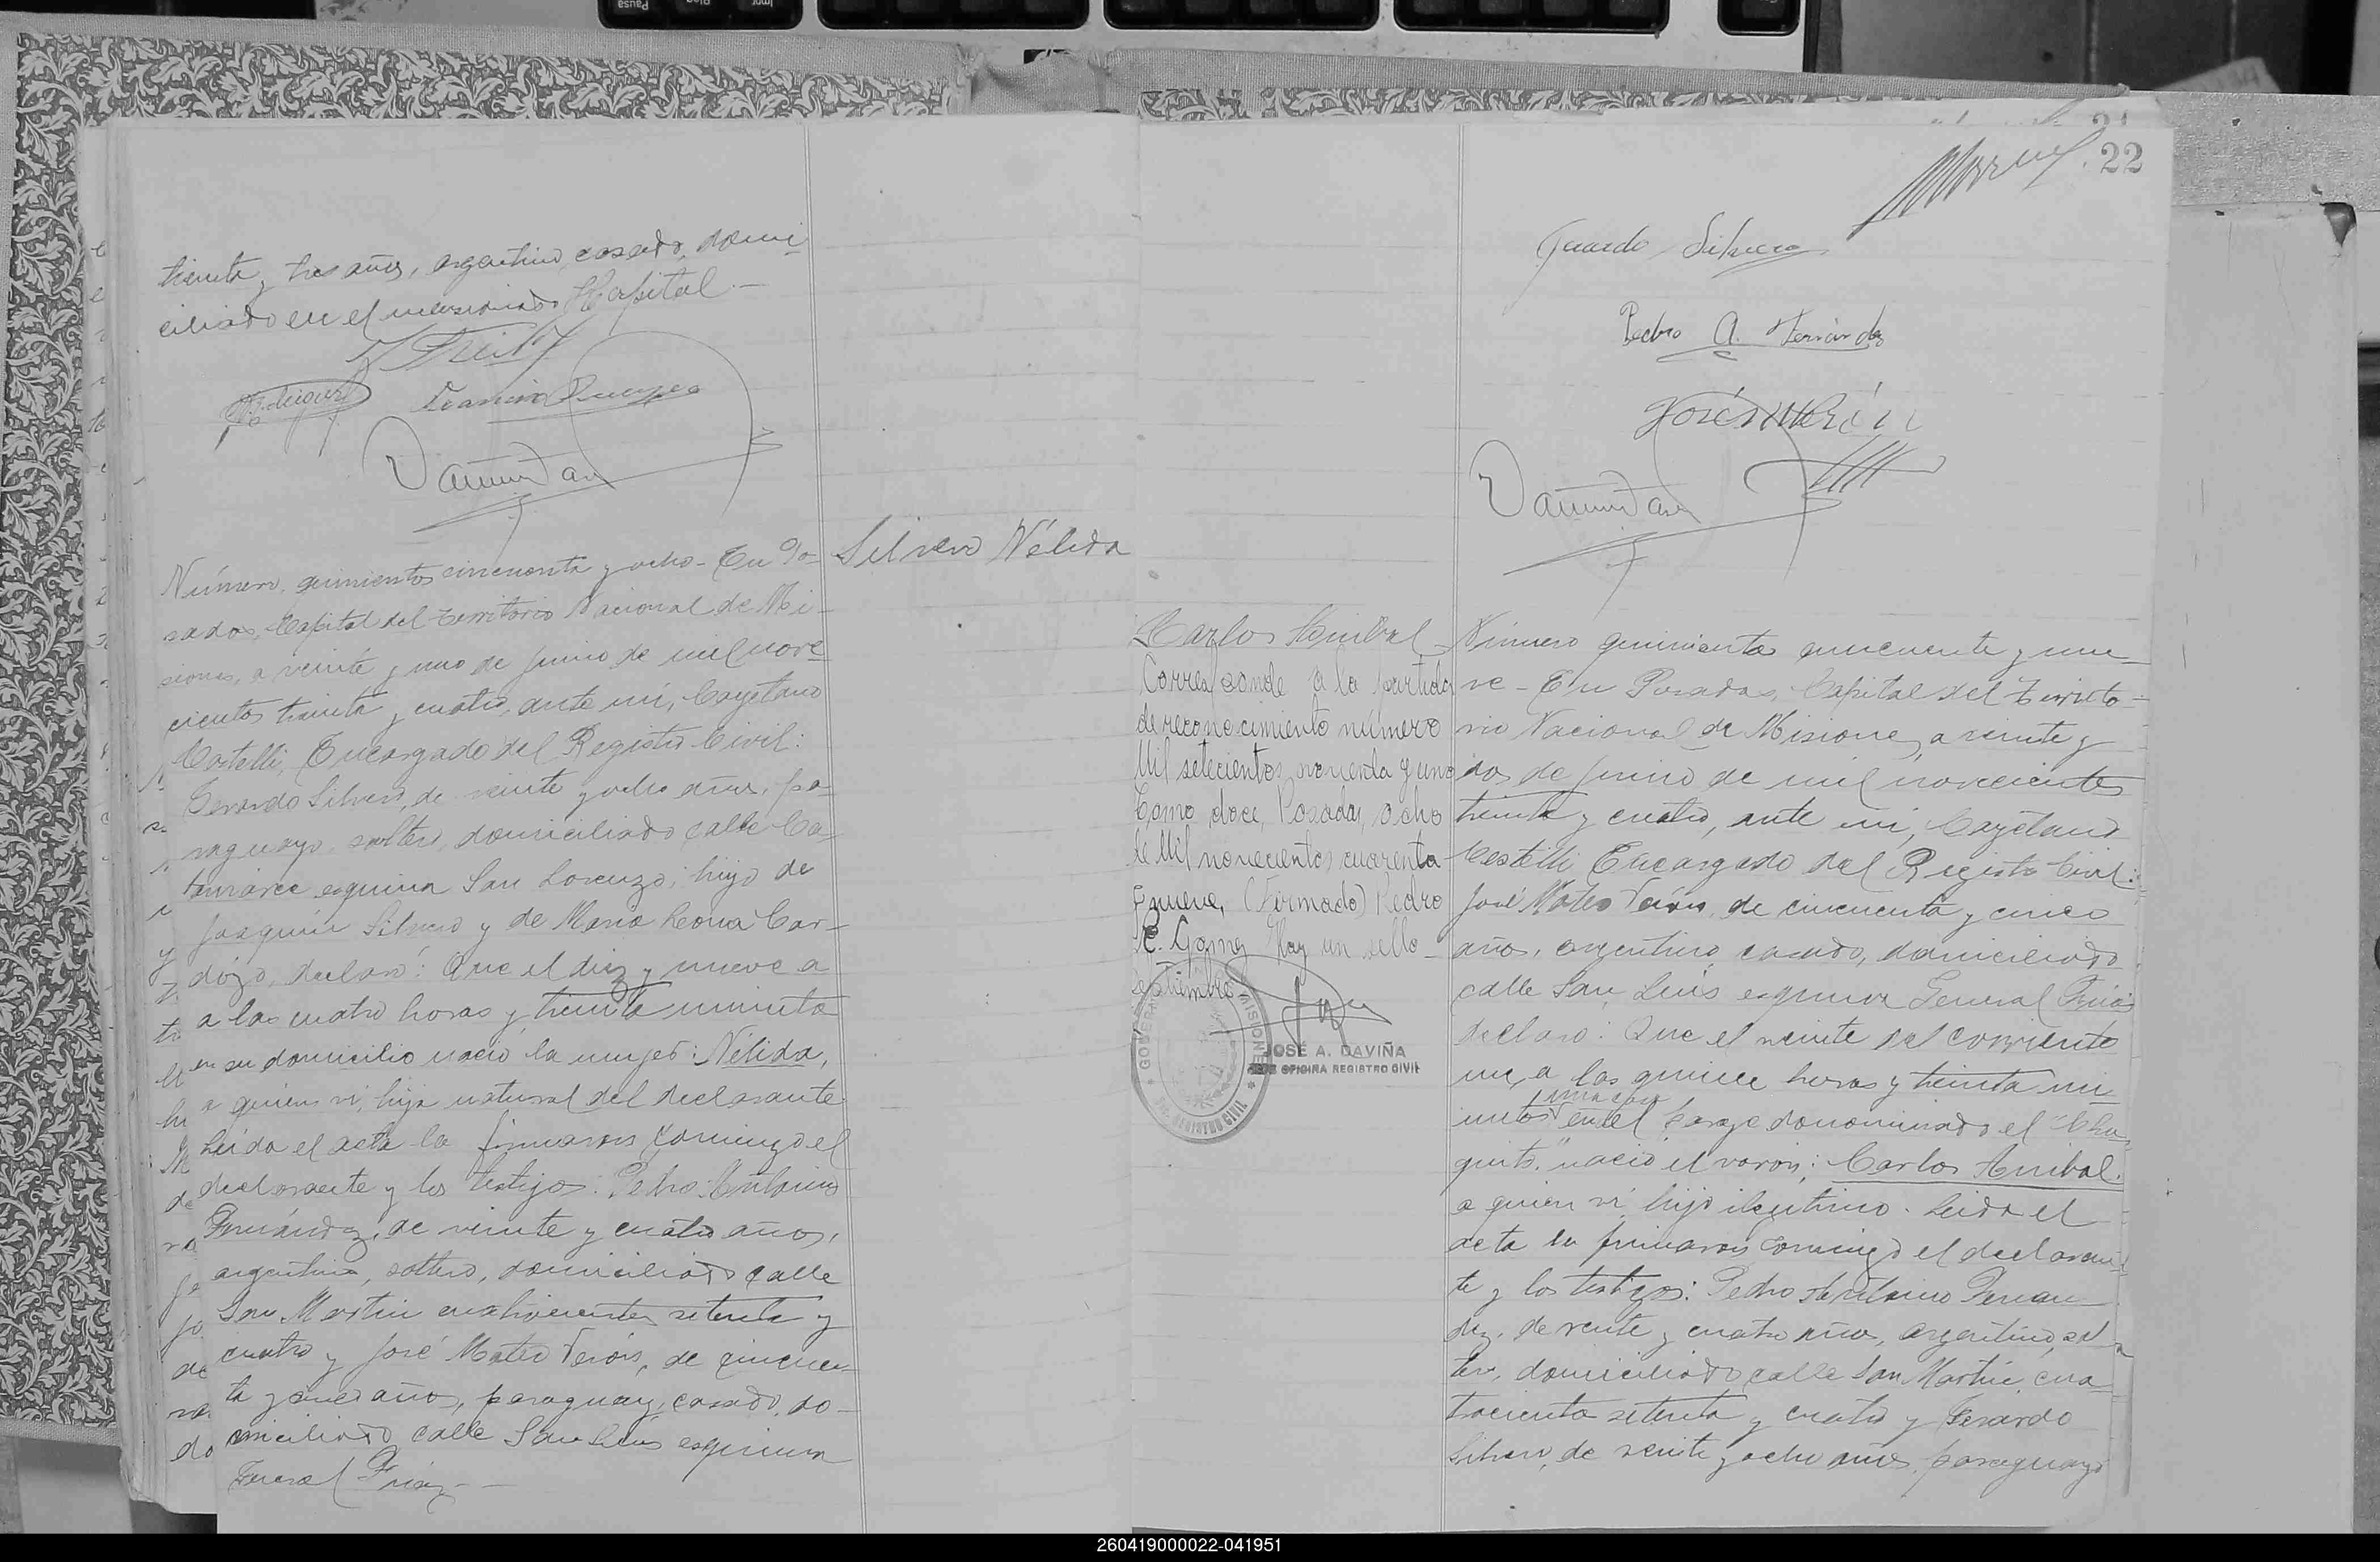 treinta y tres años, argentino, casado, domi-
ciliado en el mencionado Hospital.—
Número quinientos cincuenta y ocho - En Po-
Silvero Nélida
sadas, Capital del Territorio Nacional de Mi-
siones, a veinte y uno de Junio de mil nove-
cientos treinta y cuatro, ante mí, Cayetano
Castelli, Encargado del Registro Civil:
Gerardo Silvero, de veinte y ocho años, pa-
raguayo, soltero, domiciliado calle Ca-
tamarca esquina San Lorenzo, hijo de
Joaquín Silvero y de María Leona Car-
dozo, declaró: Que el diez y nueve a
a las cuatro horas y treinta minutos
en su domicilio nació la mujer: Nélida,
a quien ví, hija natural del declarante.
Leída el acta la firmaron conmigo el
declarante y los testigos: Pedro Antonio
Fernández, de veinte y cuatro años,
argentino, soltero, domiciliado calle
San Martín cuatrocientos setenta y
cuatro y José Mateo Verón, de cincuen-
ta y cinco años, paraguayo, casado, do-
miciliado calle San Luis esquina
General Frías.--
22
Gerardo Silvero
Pedro A. Fernández
José M Verón
Carlos Anibal
Corresponde a la partida
de reconocimiento número
Mil setecientos noventa y uno
Tomo doce, Posadas, ocho
de Mil novecientos cuarenta
y nueve, (Firmado) Pedro
Hay un sello-
septiembre
JOSÉ A. DAVIÑA
JEFE OFICINA REGISTRO CIVIL
REGISTRO CIVIL
Número quinientos cincuenta y nue-
ve - En Posadas, Capital del Territo-
rio Nacional de Misiones, a veinte y
dos de Junio de mil novecientos
treinta y cuatro, ante mí, Cayetano
Castelli Encargado del Registro Civil:
José Mateo Verón, de cincuenta y cinco
años, argentino, casado, domiciliado
calle San Luis esquina General Frías
declaró: Que el veinte del corriente
mes, a las quince horas y treinta mi
nutos en el paraje denominado el "Cha
quito," nació el varón: Carlos Anibal.
a quien ví, hijo ilegítimo. Leída el
acta la firmaron conmigo el declaran-
te y los testigos: Pedro Antonio Fernan-
dez, de veinte y cuatro años, argentino, sol
tero, domiciliado calle San Martín, cua
trocientos setenta y cuatro y Gerardo
Silvero, de veinte y ocho años, paraguayo
260419000022-041951